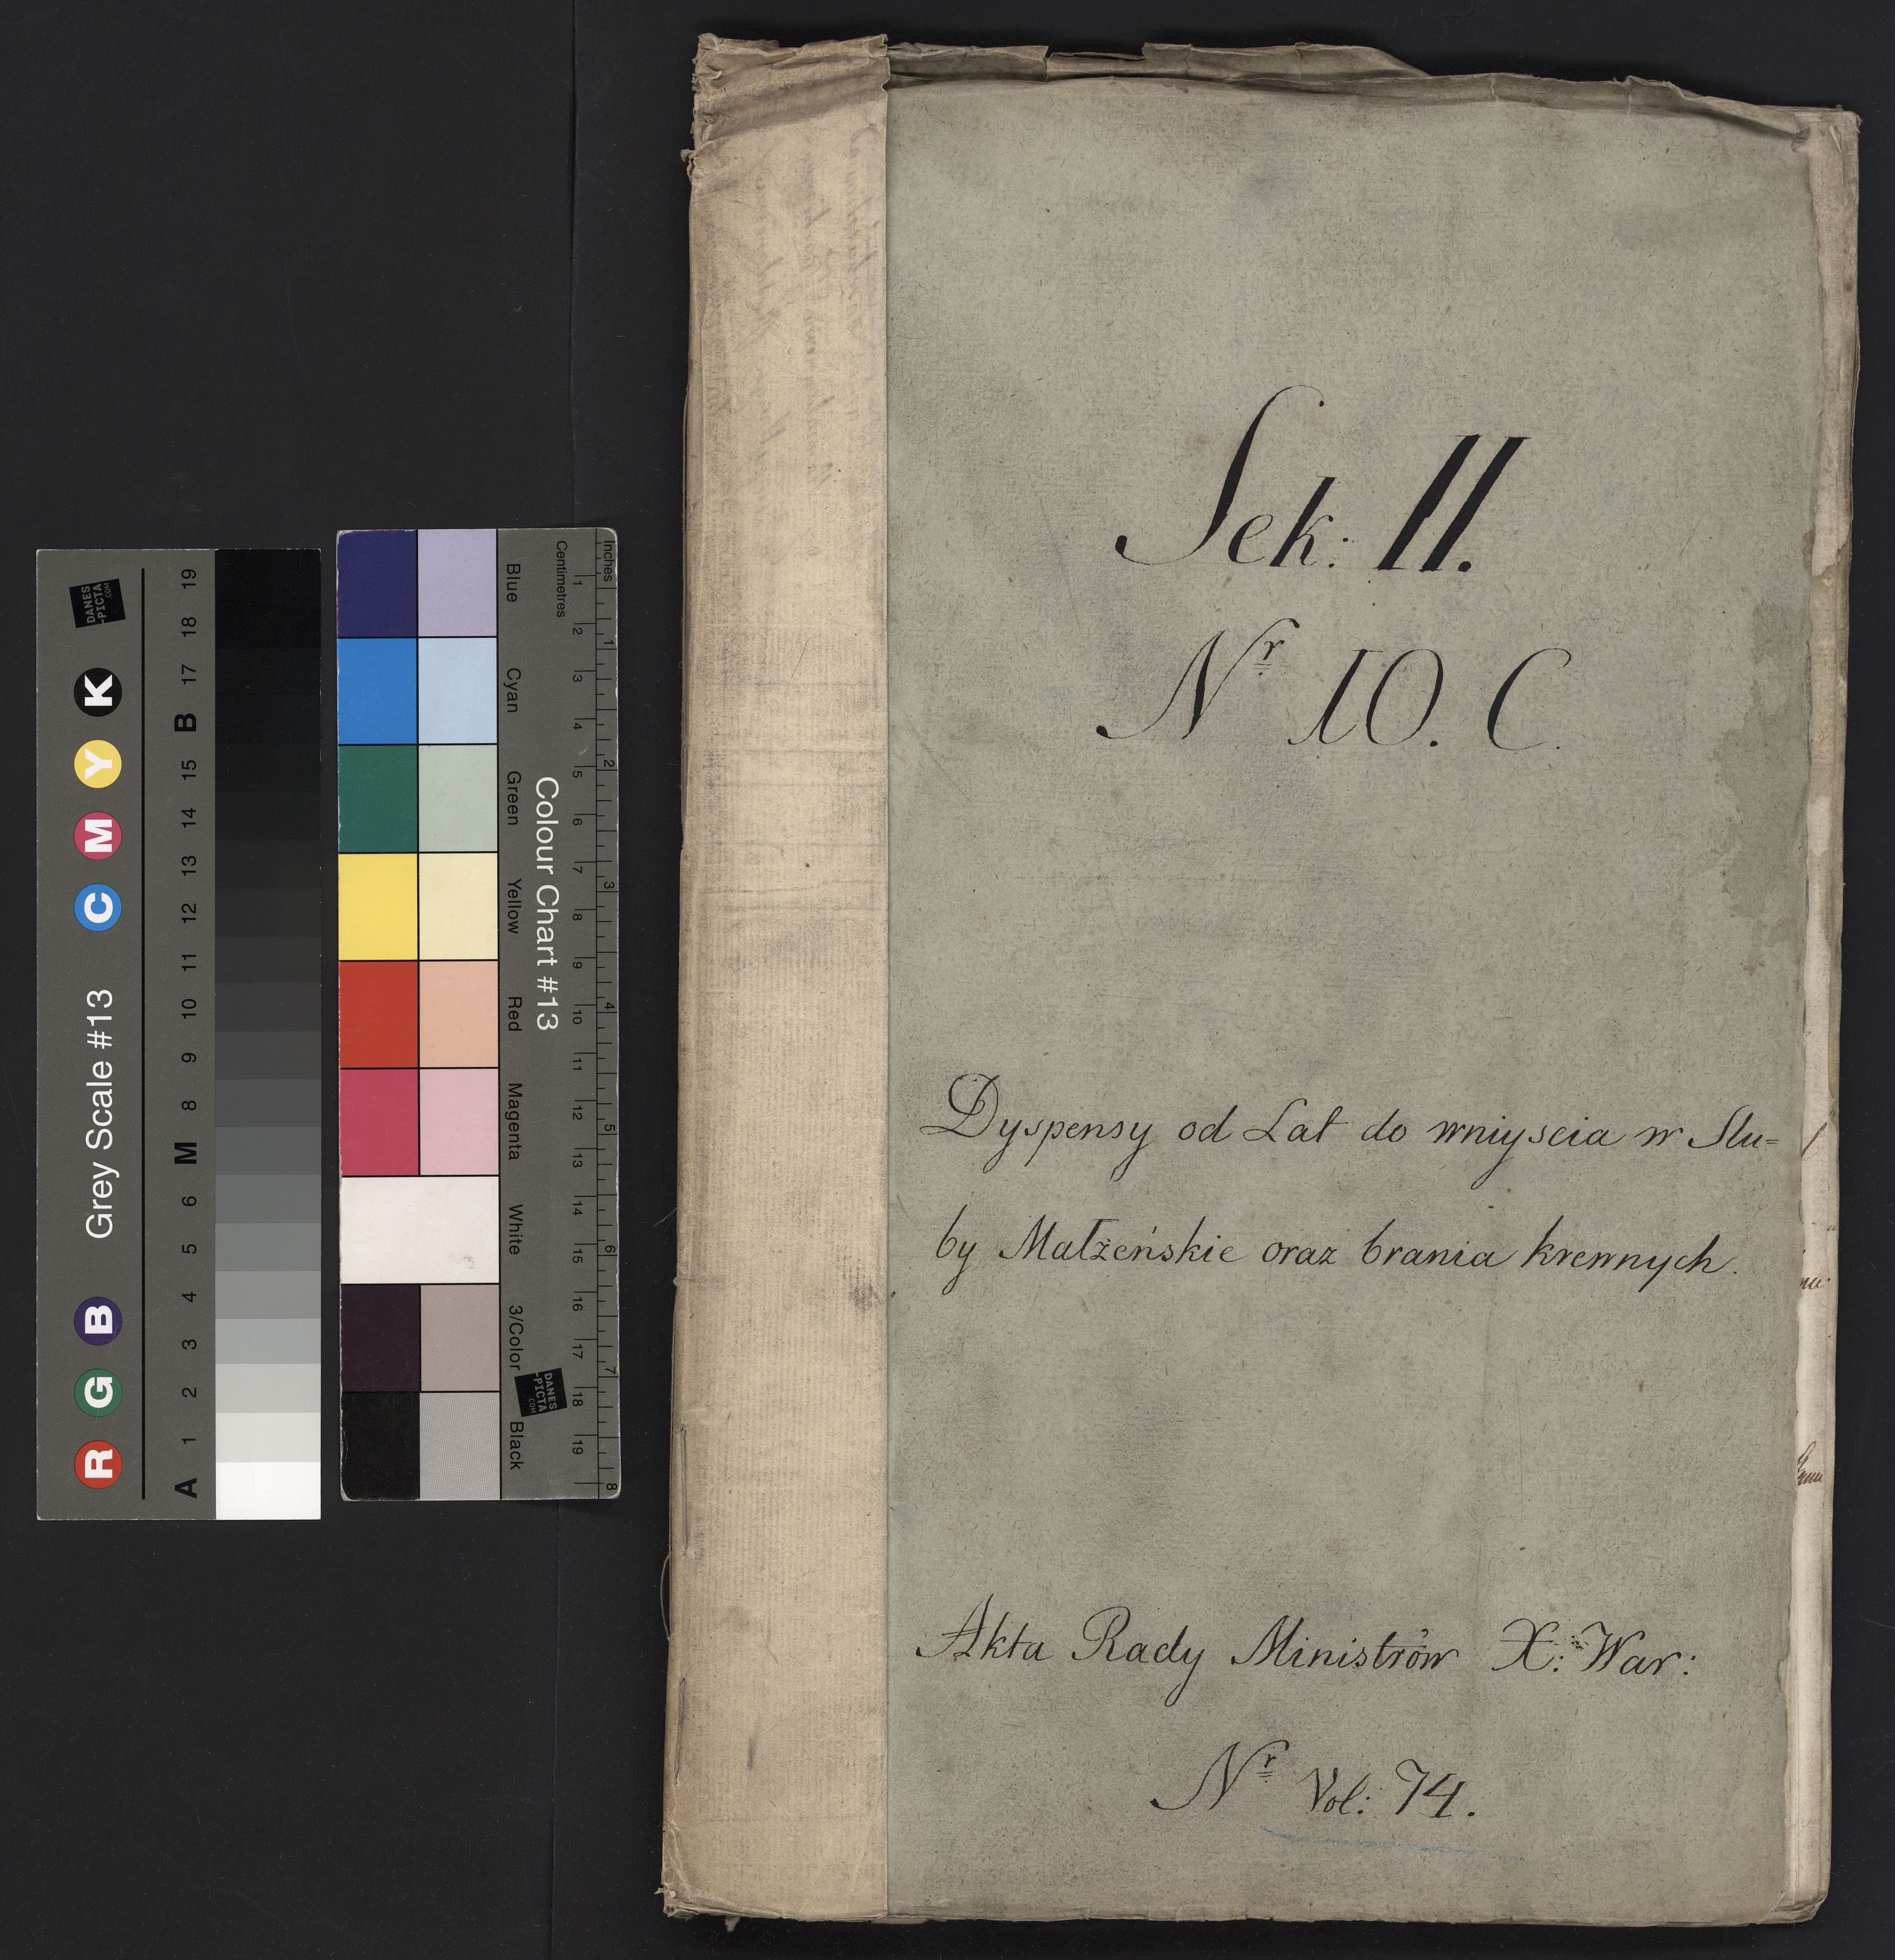 Sek: II.
Nr 10. C.
Dyspensy od Lat do wniyscia w Slu=
by Małżeńskie oraz brania krewnych.
Akta Rady Ministrów X: War:
Nr Vol: 74.
Grey Scale #13
R G B C M Y K
A 1 2 3 4 5 6 M 8 9 10 11 12 13 14 15 B 17 18 19
DANES
-PICTA
.COM
Colour Chart #13
Blue
Cyan
Green
Yellow
Red
Magenta
White
3/Color
Black
Inches
1 2 3 4 5 6 7 8
Centimetres
1 2 3 4 5 6 7 8 9 10 11 12 13 14 15 16 17 18 19
DANES
-PICTA
.COM